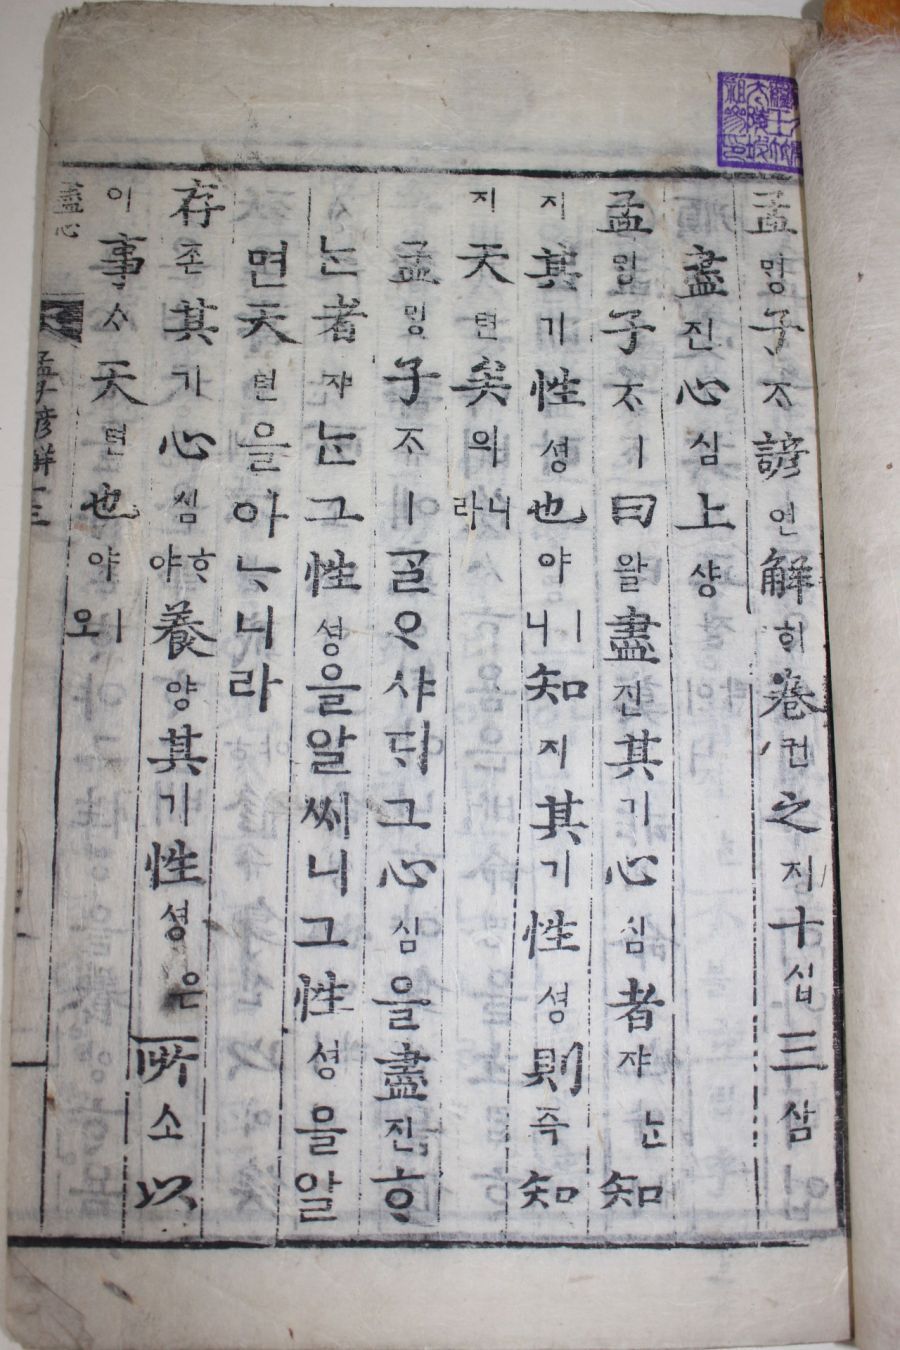 孟밍子ᄌᆞ諺언解ᄒᆡ卷권之지十십三삼
盡진心심上샹
孟밍子ᄌᆞㅣ曰왈盡진其기心심者쟈ᄂᆞᆫ知
지其기性셩也야ㅣ니知지其기性셩則즉知
지天텬矣의니라
孟밍子ᄌᆞㅣᄀᆞᆯᄋᆞ샤ᄃᆡ그心심을盡진ᄒᆞ
ᄂᆞᆫ者쟈ᄂᆞᆫ그性셩을알ᄯᅵ니그性셩을알
면天텬을아ᄂᆞ니라
存존其기心심ᄒᆞ야養양其기性셩은所소以
이事ᄉᆞ天텬也야ㅣ오
盡心
孟子諺解十三